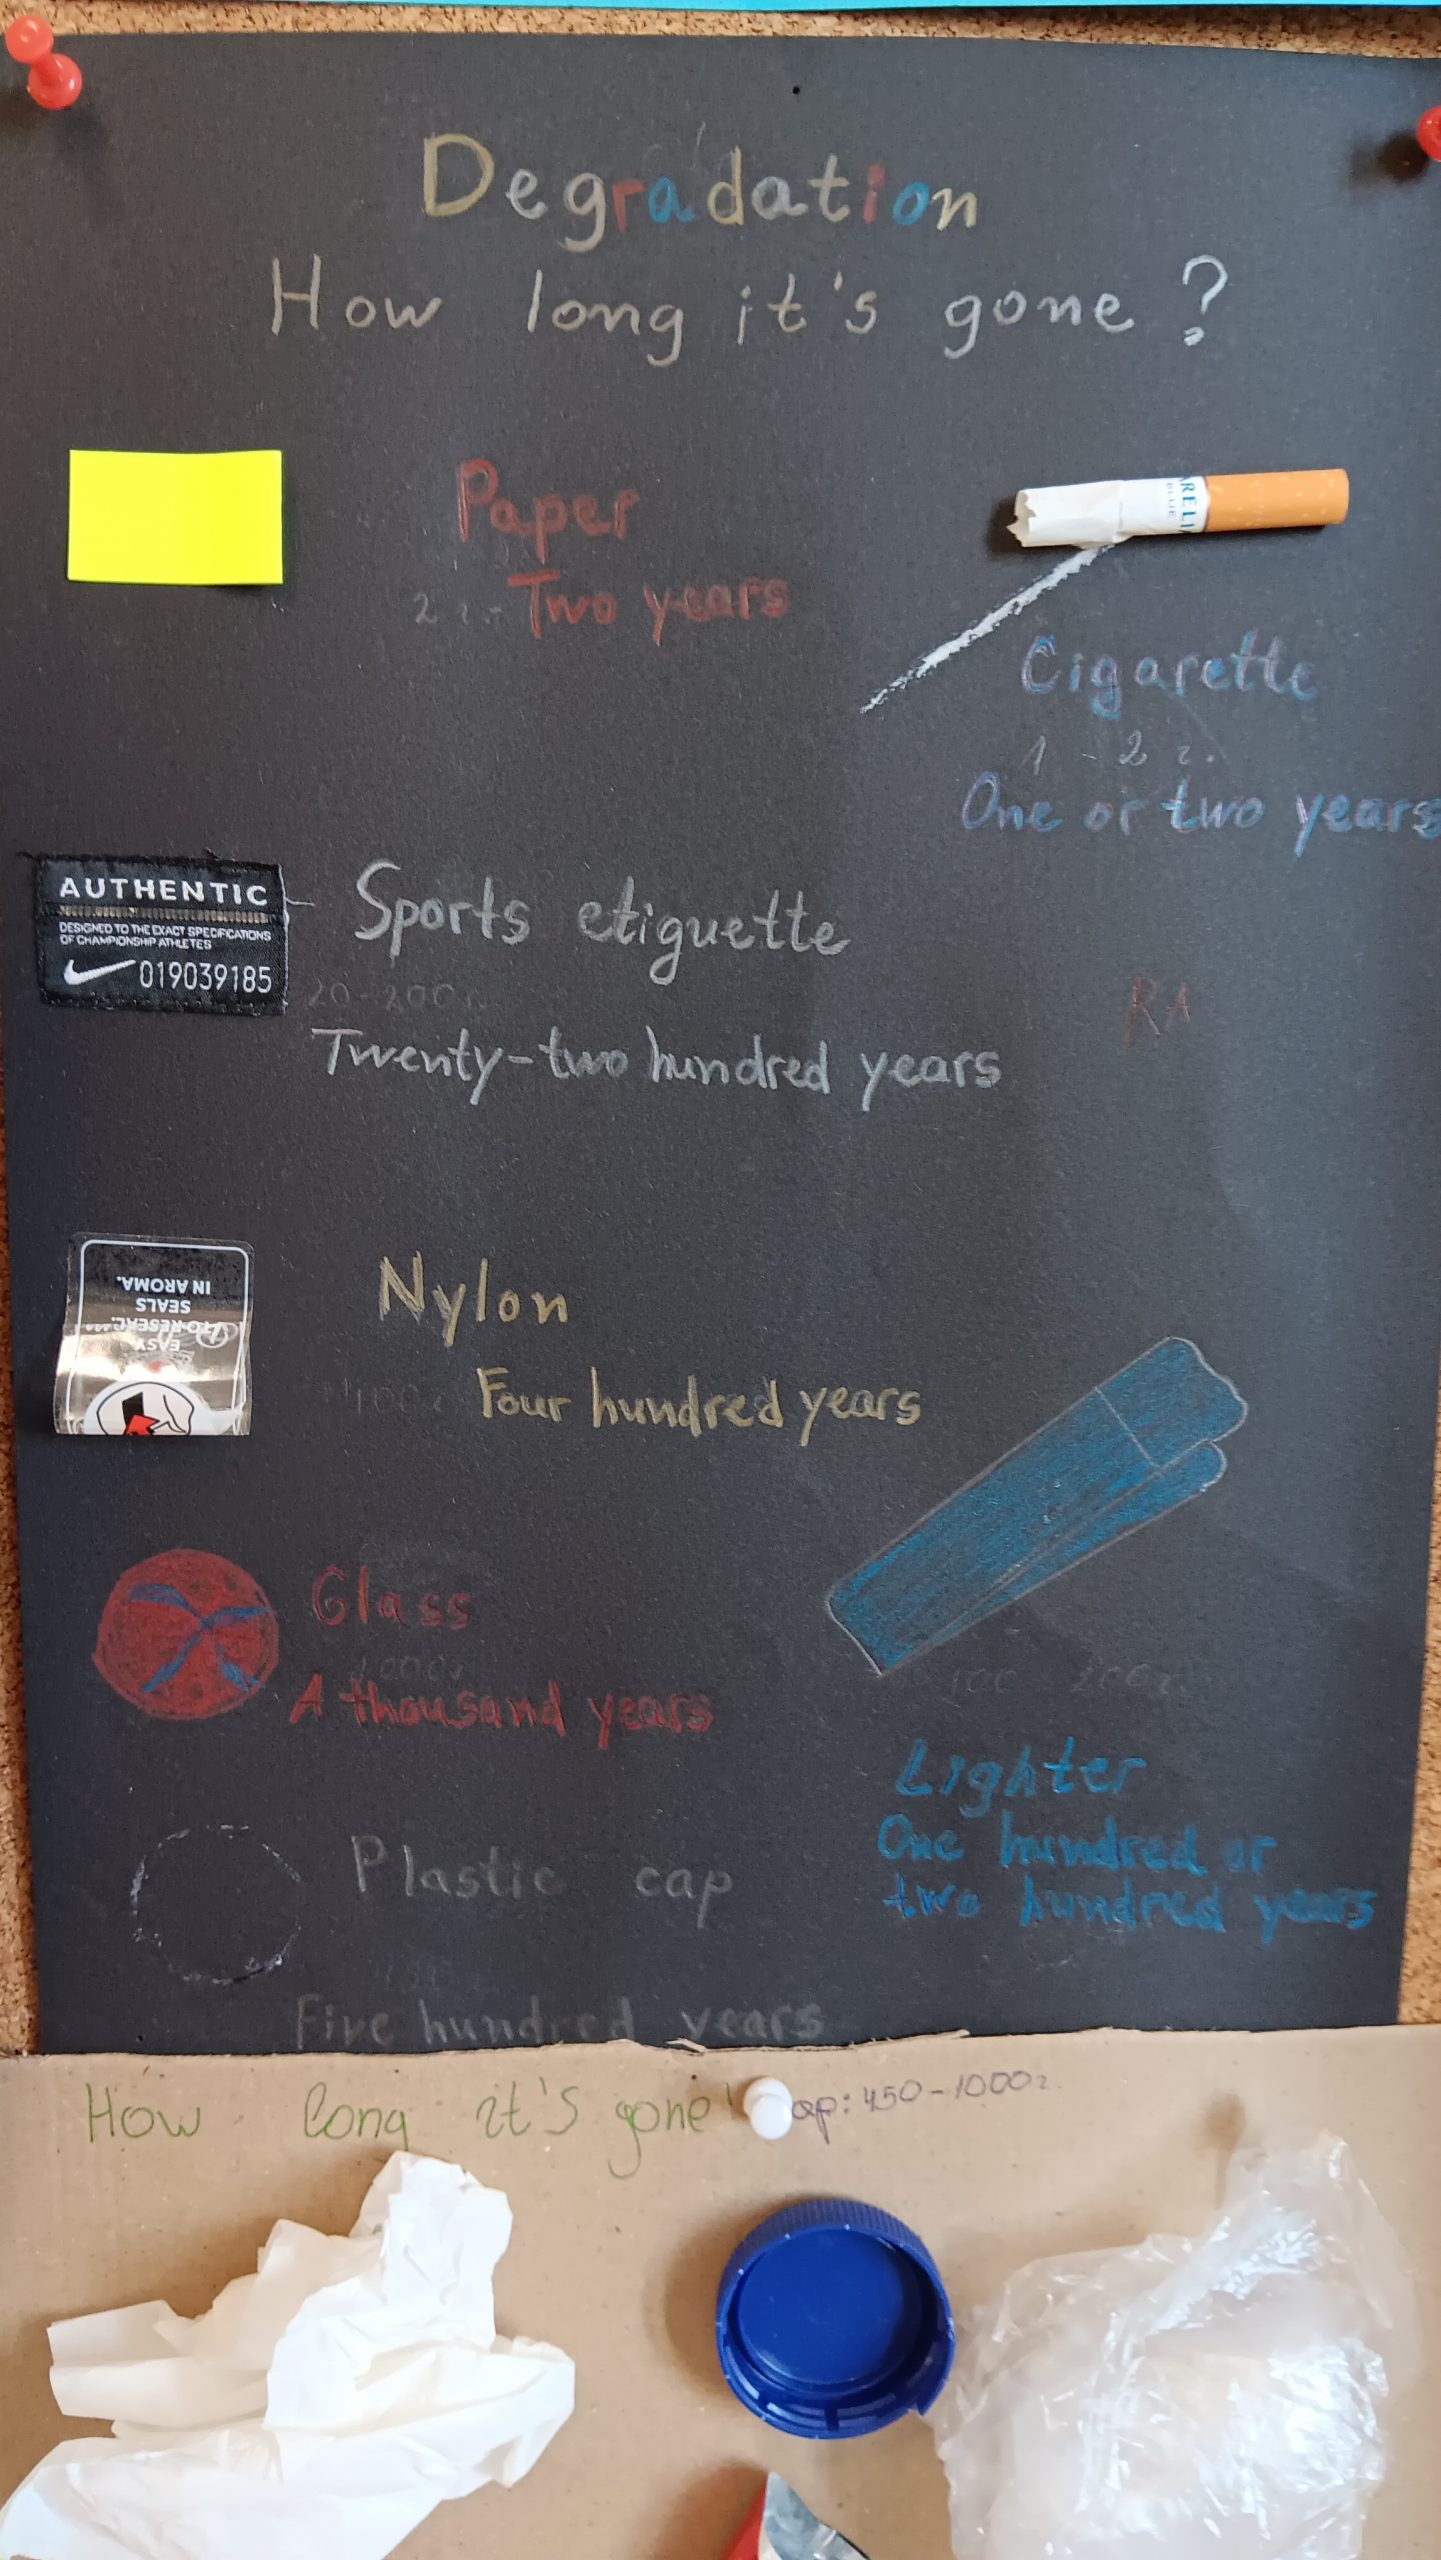 Degradation
How long it's gone?
Paper
2 г. Two years
ARELI
BLUE
Cigarette
1 - 2 г.
One or two years
AUTHENTIC
DESIGNED TO THE EXACT SPECIFICATIONS
OF CHAMPIONSHIP ATHLETES
019039185
Sports etiguette
20-200г.
Twenty-two hundred years
RA
EASY
TO RESEAL.
SEALS
IN AROMA.
Nylon
400г. Four hundred years
Glass
1000г.
A thousand years
100 200г.
Lighter
One hundred or
two hundred years
Plastic cap
Five hundred years
How long it's gone!
ap: 450-1000г.